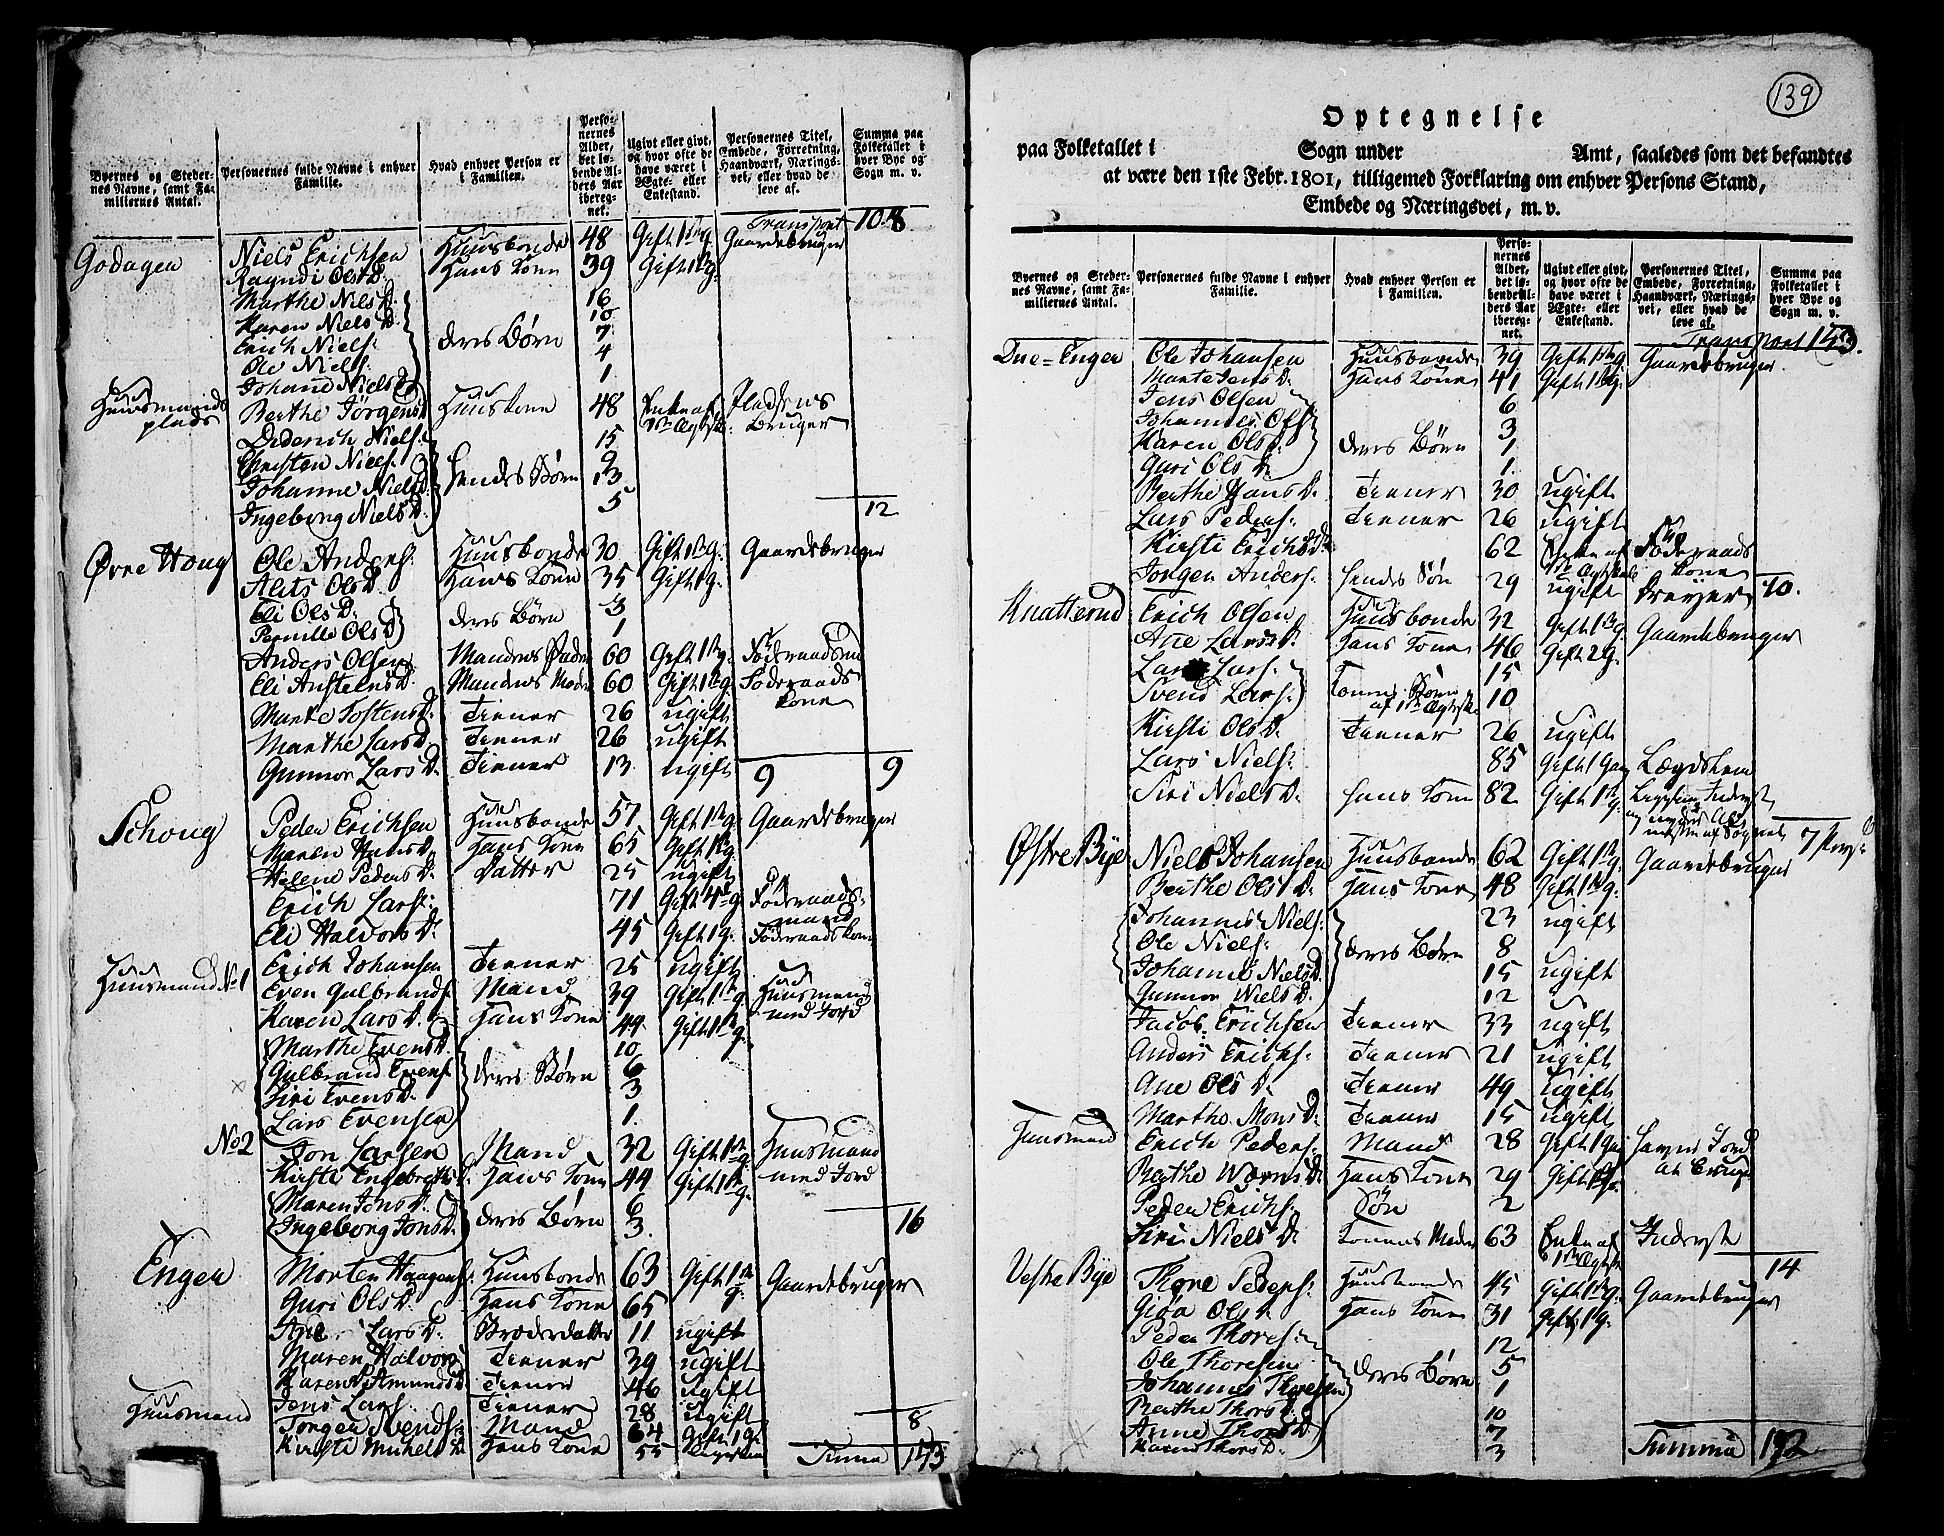 Byernes og Steder-
nes Navne, samt Fa-
miliernes Antal.
Personernes fulde Navne i enhver
Familie.
Hvad enhver Person er
i Familien.
Perso-
nernes
Alder,
det lø-
bende Al-
ders Aar
ibereg-
net.
Ugivt eller givt,
og hvor ofte de
have været i
Ægte- eller
Enkestand.
Personernes Titel,
Embede, Forretning,
Haandværk, Nærings-
vei, eller hvad de
leve af.
Summa paa
Folketallet i
hver Bye og
Sogn m. v.
Transport 108
Godagen Niels Erichsen Huusbonde 48 Gift 1ste g. Gaardebruger
Ragndi Ols D. Hans Kone 39 Gift 1ste g.
Marthe Niels D. 16
Karen Niels D. 10
Erich Niels: deres Børn 7
Ole Niels: 4
Johane Niels D. 1
Huusmands plads Berthe Jørgens D. Huuskone 48 Enke af 1ste Ægtesk. Pladsens Bruger
Diderich Niels: 15
Christen Niels: 9
Johanne Niels D. hendes Børn 13
Ingeborg Niels D. 5 12
Øvre Houg Ole Anders: Huusbonde 30 Gift 1ste g. Gaardebruger
Alits Ols D. Hans Kone 35 Gift 1 g.
Eli Ols D. deres Børn 3
Pernille Ols D. 1
Anders Olsen Mandens Fader 60 Gift 1ste g. Føderaadsm
Eli Anstens D. Mandens Moder 60 Gift 1ste g. Føderaads kone
Marte Tostens D. Tiener 26 ugift
Marthe Lars D. Tiener 26 ugift
Gunnor Lars D. Tiener 13 ugift 9 9
Schoug Peder Erichsen Huusbonde 57 Gift 1ste g. Gaardebruger
Maren Hans D. Hans Kone 65 Gift 1ste g.
Helene Peders D. Datter 25 ugift
Erich Lars: 71 Gift 4de g. Føderaads-mand
Eli Halvors D. 45 Gift 1 g. Føderaads kone
Erich Johansen Tiener 25 ugift
Huusmand No 1 Even Gulbrands: Mand 39 Gift 1ste g. Huusmand med Jord
Karen Lars D. Hans Kone 49 Gift 1ste g.
Marthe Evens D. 10
Gulbrand Evens: deres Børn 6
Siri Evens D. 3
Lars Evensen 1.
No 2 Jon Larsen Mand 32 Gift 1ste g. Huusmand med Jord
Kirsti Engebrets D. Hans Kone 44 Gift 1ste g.
Maren Jons D. deres Børn 6
Ingeborg Jons D. 3. 16
Enger Morten Haagens: Huusbonde 63 Gift 1ste g. Gaardebruger
Guri Ols D. Hans Kone 65
Ane Lars D. Broderdatter 11 ugift
Maren Halvors Tiener 39 ugift
Karen Amunds D. Tiener 46 ugift
Jens Lars: Tiener 28 ugift 8
Huusmand Jørgen Svends: Mand 64 Gift 1 g.
Kirsti Michels D. Hans Kone 55
Suma 153
139
Optegnelse
paa Folketallet i Sogn under Amt, saaledes som det befandtes
at være den 1ste Febr. 1801, tilligemed Forklaring om enhver Persons Stand,
Embede og Næringsvei, m. v.
Byernes og Steder-
nes Navne, samt Fa-
miliernes Antal.
Personernes fulde Navne i enhver
Familie.
Hvad enhver Person er
i Familien.
Perso-
nernes
Alder,
det lø-
bende Al-
ders Aar
ibereg-
net.
Ugivt eller givt,
og hvor ofte de
have været i
Ægte- eller
Enkestand.
Personernes Titel,
Embede, Forretning,
Haandværk, Nærings-
vei, eller hvad de
leve af.
Summa paa
Folketallet i
hver Bye og
Sogn m. v.
Transport 153.
Due-Enger Ole Johansen Huusbonde 39 Gift 1ste g. Gaardebruger
Marte Jens D. Hans Kone 41 Gift 1ste g.
Jens Olsen 6
Johannes Ols: 3
Karen Ols D. deres Børn 1
Guri Ols D. 1.
Berthe Hans D. Tiener 30 ugift
Lars Peders: Tiener 26 ugift
Kirsti Erichs D. 62 Enke af 1ste Ægteskab Føderaads kone
Jørgen Anders: hendes Søn 29 ugift 10.
Knatterud Erich Olsen Huusbonde 32 Gift 1ste g. Gaardebruger
Ane Lars D. Hans Kone 46 Gift 2 g.
Lars Lars: 15
Svend Lars: Konens Børn af 1ste Ægtesk. 10
Kirsti Ols D. Tiener 26 ugift
Lars Niels: 85 Gift 1 Gang Lægdslem
Siri Niels D. hans Kone 82 Gift 1ste g.
7
Østre Bye Niels Johansen Huusbonde 62 Gift 1ste g. Gaardebruger
Berthe Ols D. Hans Kone 48 Gift 1ste g.
Johannes Niels: 23 ugift
Ole Niels: deres Børn 8
Johanne Niels D. 15 ugift
Gunnor Niels D. 12
Jacob Erichsen Tiener 33 ugift
Anders Erichs: Tiener 21 ugift
Ane Ols D. Tiener 49 ugift
Marthe Mons D. Tiener 15 ugift
Huusmand Erich Peders: Mand 28 Gift 1 Gang
Berthe Worms D. Hans Kone 29
Peder Erichs: Søn 2
Siri Niels D. Konens Moder 63 Enke af 1ste Ægtesk. Inderst 14
Vestre Bye Thore Peders: Huusbonde 45 Gift 1ste g. Gaardebruger
Giøa Ols D. Hans Kone 31 Gift 1 g.
Peder Thores: 12
Ole Thoresen 5
Johannes Thoresen deres Børn 1
Berthe Thors D. 10
Anne Thors D. 7
Karen Thors D. 3
Summa 192